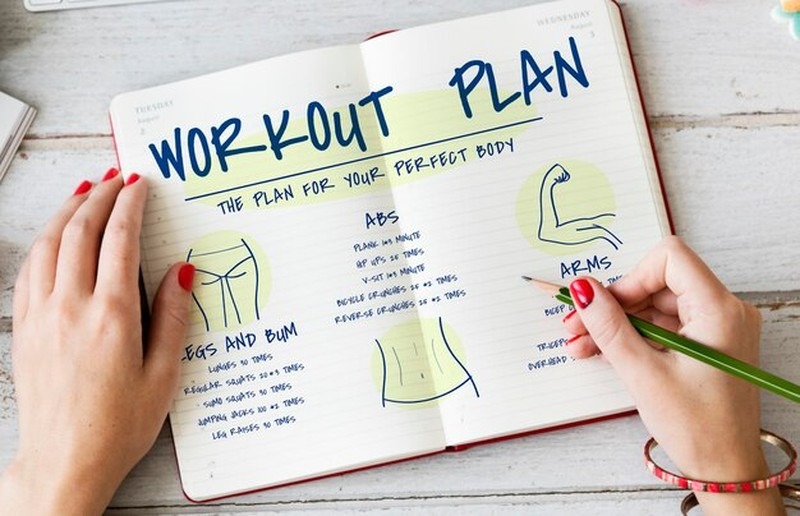 TUESDAY
August
2
WEDNESDAY
August
3
WORKOUT PLAN
THE PLAN FOR YOUR PERFECT BODY
LEGS AND BUM
LUNGES 30 TIMES
REGULAR SQUATS 20*3 TIMES
SUMO SQUATS 30 TIMES
JUMPING JACKS 100 *2 TIMES
LEG RAISES 30 TIMES
ABS
PLANK 1*3 MINUTE
UPS 25 TIMES
V-SIT 1*3 MINUTE
BICYCLE CRUNCHES 25 *2 TIMES
REVERSE CRUNCHES 25 *2 TIMES
ARMS
BICEP
TRICEPS
OVERHEAD